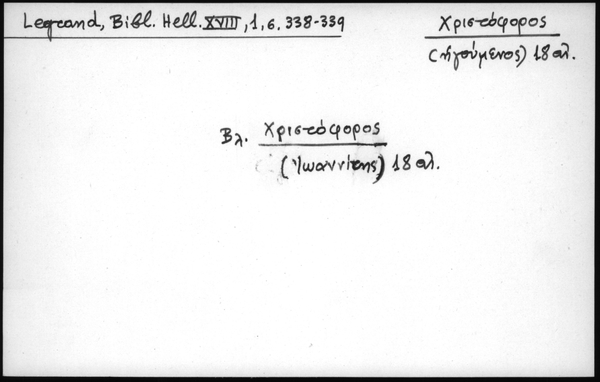 Legrand, Bibl. Hell. XVIII, 1, σ. 338-339
Χριστόφορος
(ἡγούμενος) 18 αἰ.
Βλ. Χριστόφορος
(Ἰωαννίτης) 18 αἰ.